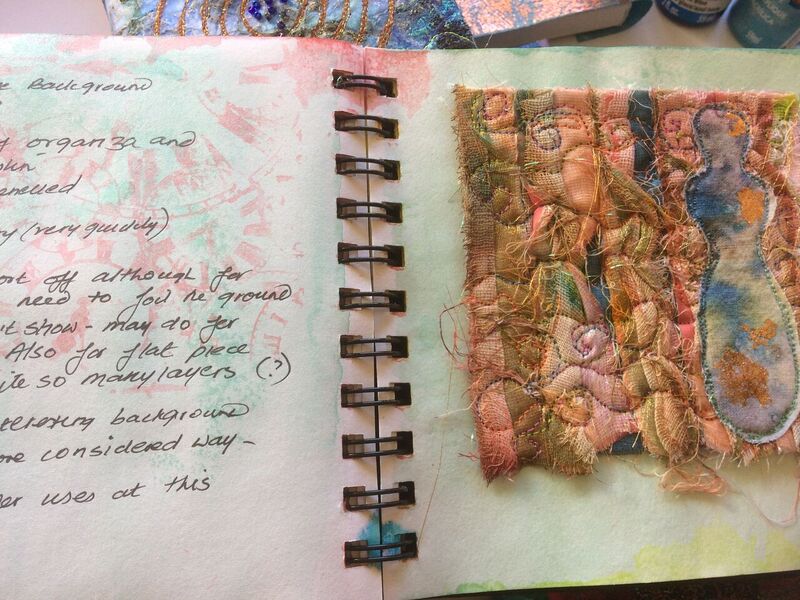 Background
organza and
(very quickly)
off although for
need to foil he ground
show - may do for
Also for flat piece
so many layers (?)
background
considered way -
uses at this